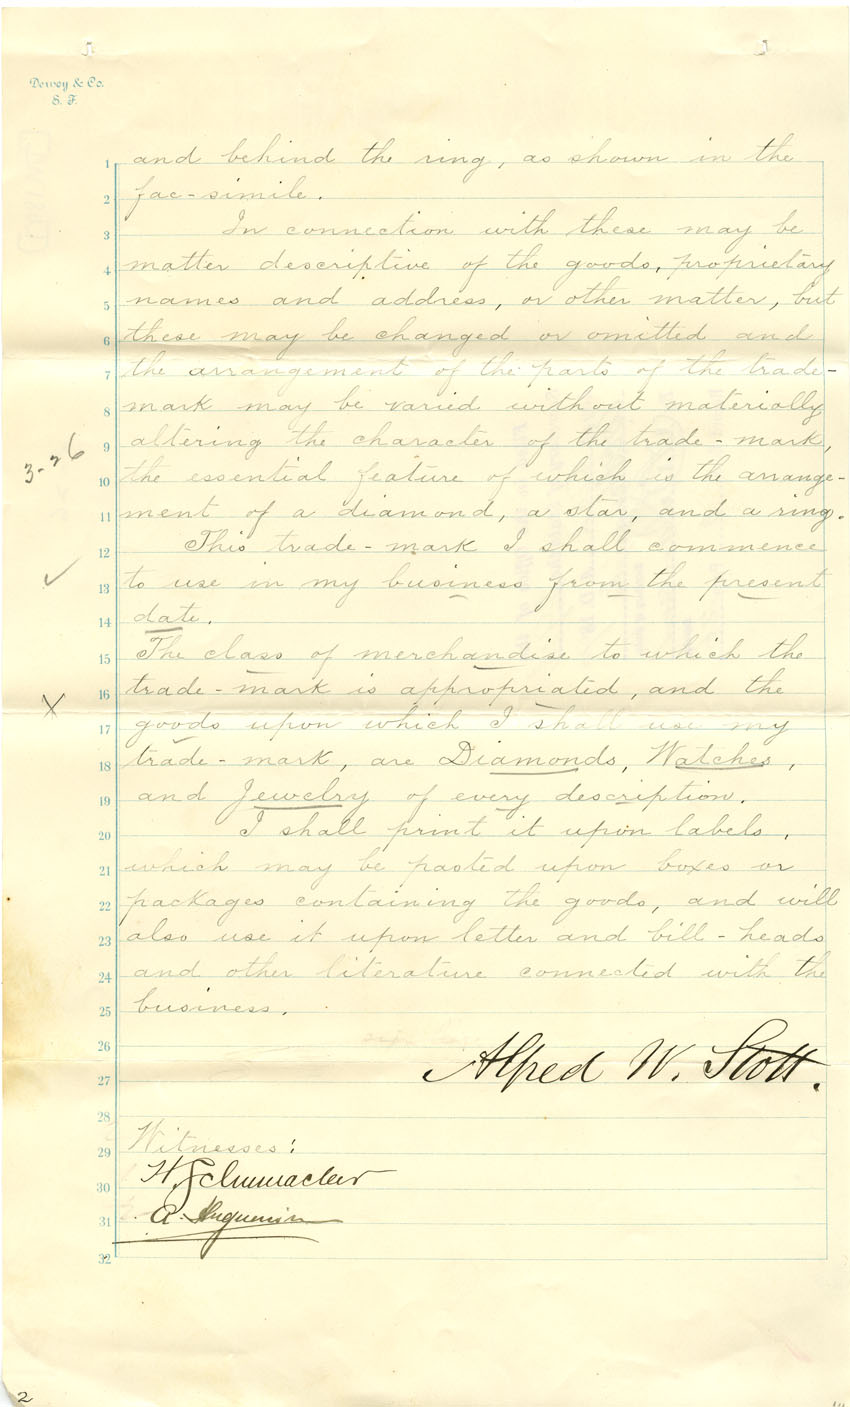 Dewey & Co.
S. F.
1 and behind the ring, as shown in the
2 fac-simile.
3 In connection with these may be
4 matter descriptive of the goods, proprietary
5 names and address, or other matter, but
6 these may be changed or omitted and
7 the arrangement of the parts of the trade-
8 mark may be varied without materially
9 altering the character of the trade-mark,
3-26
10 the essential feature of which is the arrange-
11 ment of a diamond, a star, and a ring.
12 This trade-mark I shall commence
13 to use in my business from the present
14 date.
15 The class of merchandise to which the
16 trade-mark is appropriated, and the
17 goods upon which I shall use my
18 trade-mark, are Diamonds, Watches,
19 and Jewelry of every description.
20 I shall print it upon labels,
21 which may be pasted upon boxes or
22 packages containing the goods, and will
23 also use it upon letter and bill-heads
24 and other literature connected with the
25 business.
26
27 Alfred W. Stott.
28
29 Witnesses:
30 H. Schumacher
31 A. Huguenin
32
2